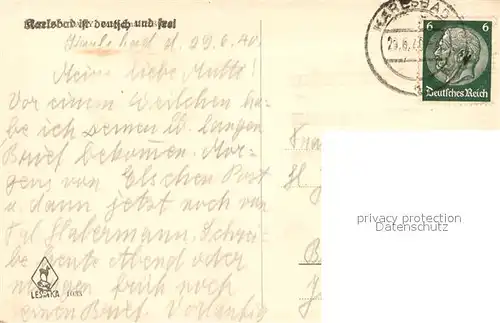 Karlsbad ist deutsch und frei
Karlsbad d. 29.6.40.
KARLSBAD
6 6
Deutsches Reich
Meine liebe Mutti!
Vor einem Weilchen ha-
be ich Deinen lb. langen
Brief bekommen. Mor-
gens von Elschen Post
u. dann jetzt noch von
Frl. Habermann. Schrei-
be heute Abend oder
morgen früh noch
einen Brief. Vorläufig
LESSKA
privacy protection
Datenschutz